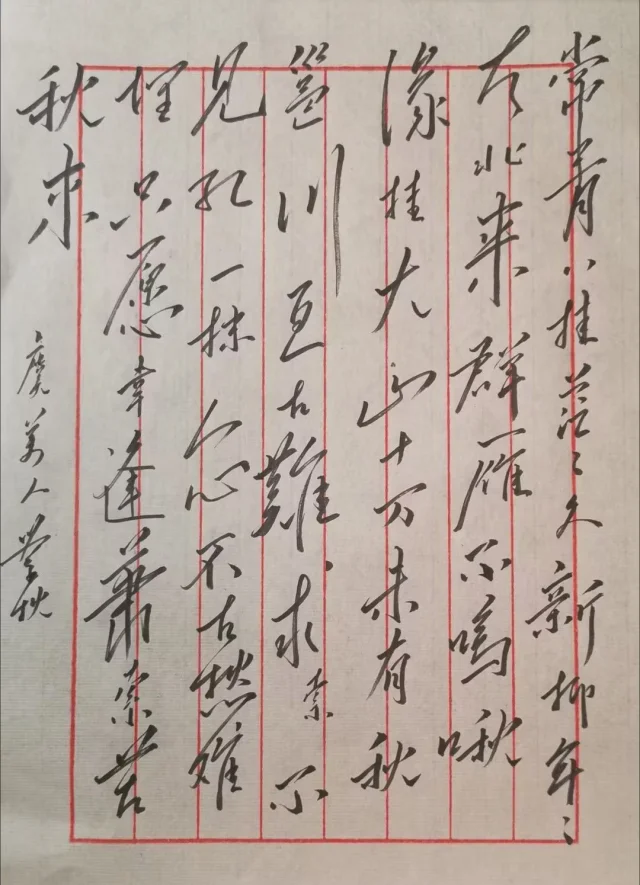 常青八桂茫〻久新柳年〻
有北来群雁不鸣啾
缘挂大山十万未有秋
邕川亘古难求索不
见孔一抹人心不古愁难
埋只愿幸逢萧索苦
秋来
虞美人 秋